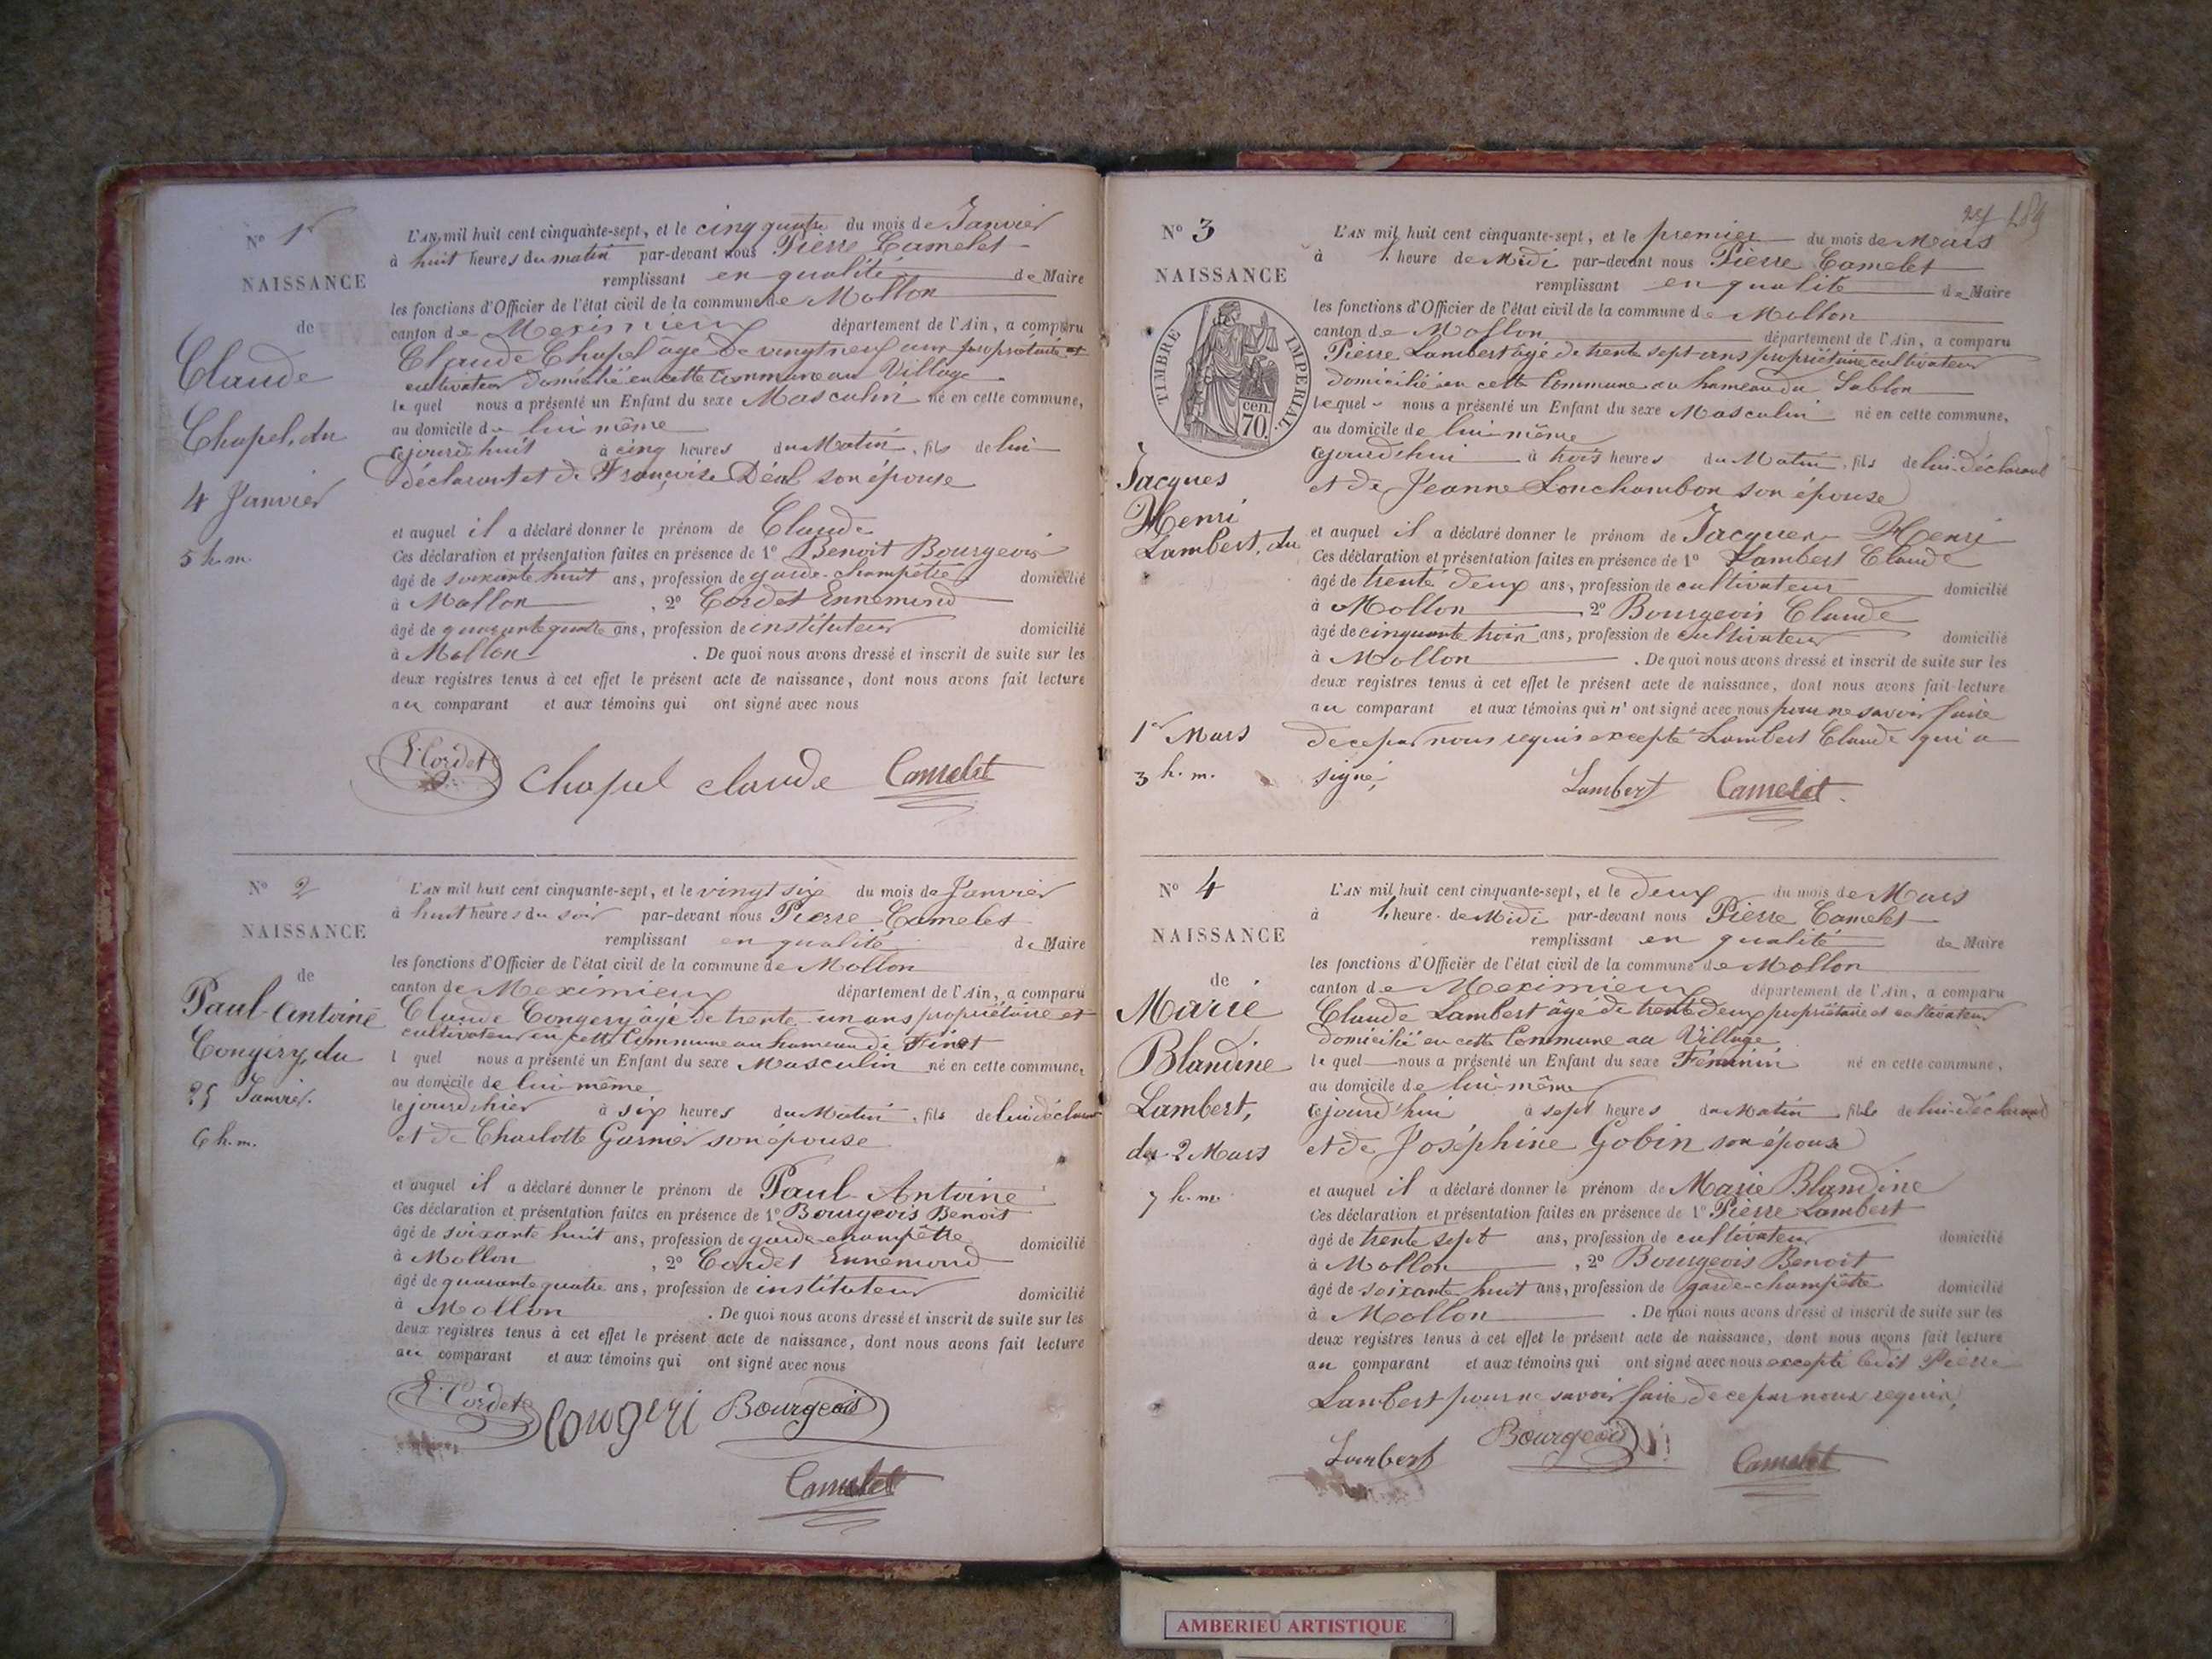 N° 1er
NAISSANCE
de
Claude
Chapel, du
4 Janvier
5 h. m.
L'AN mil huit cent cinquante-sept, et le quatre du mois de Janvier
à huit heures du matin par-devant nous Pierre Camelet
remplissant en qualité de Maire
les fonctions d'Officier de l'état civil de la commune de Mollon
canton de Meximieux département de l'Ain, a comparu
Claude Chapel âgé de vingt neuf ans propriétaire et
cultivateur domicilié en cette Commune au Village
lequel nous a présenté un Enfant du sexe Masculin né en cette commune,
au domicile de lui même
cejourd'huit à cinq heures du Matin, fils de lui
déclarant et de Françoise Déal son épouse
et auquel il a déclaré donner le prénom de Claude
Ces déclaration et présentation faites en présence de 1° Benoit Bourgeois
âgé de soixante huit ans, profession de garde-champêtre domicilié
à Mollon, 2° Cordet Ennemond
âgé de quarante quatre ans, profession de instituteur domicilié
à Mollon. De quoi nous avons dressé et inscrit de suite sur les
deux registres tenus à cet effet le présent acte de naissance, dont nous avons fait lecture
au comparant et aux témoins qui ont signé avec nous
E. Cordet Chapel claude Camelet
N° 2
NAISSANCE
de
Paul-Antoine
Congery, du
25 Janvier.
6 h. m.
L'AN mil huit cent cinquante-sept, et le vingt six du mois de Janvier
à huit heures du soir par-devant nous Pierre Camelet
remplissant en qualité de Maire
les fonctions d'Officier de l'état civil de la commune de Mollon
canton de Meximieux département de l'Ain, a comparu
Claude Congery âgé de trente-un ans propriétaire et
cultivateur en cette Commune au hameau de Finet
lquel nous a présenté un Enfant du sexe Masculin né en cette commune,
au domicile de lui même
le jourd'hier à six heures du Matin, fils de lui déclarant
et de Charlotte Garnier son épouse
et auquel il a déclaré donner le prénom de Paul-Antoine
Ces déclaration et présentation faites en présence de 1° Bourgeois Benoit
âgé de soixante huit ans, profession de garde-champêtre domicilié
à Mollon, 2° Cordet Ennemond
âgé de quarante quatre ans, profession de instituteur domicilié
à Mollon. De quoi nous avons dressé et inscrit de suite sur les
deux registres tenus à cet effet le présent acte de naissance, dont nous avons fait lecture
au comparant et aux témoins qui ont signé avec nous
E. Cordet Congeri Bourgeois
Camelet
N° 3
NAISSANCE
TIMBRE IMPERIAL
70. cen.
Jacques
Henri
Lambert, du
1er Mars
3 h. m.
L'AN mil huit cent cinquante-sept, et le premier du mois de Mars
à 1 heure de Midi par-devant nous Pierre Camelet
remplissant en qualité de Maire
les fonctions d'Officier de l'état civil de la commune de Mollon
canton de Mollon département de l'Ain, a comparu
Pierre Lambert âgé de trente sept ans propriétaire cultivateur
domicilié en cette Commune au hameau du Sablon
lequel nous a présenté un Enfant du sexe Masculin né en cette commune,
au domicile de lui-même
cejourd'hui à trois heures du Matin, fils de lui déclarant
et de Jeanne Lonchambon son épouse
et auquel il a déclaré donner le prénom de Jacques Henri
Ces déclaration et présentation faites en présence de 1° Lambert Claude
âgé de trente deux ans, profession de cultivateur domicilié
à Mollon 2° Bourgeois Claude
âgé de cinquante trois ans, profession de cultivateur domicilié
à Mollon. De quoi nous avons dressé et inscrit de suite sur les
deux registres tenus à cet effet le présent acte de naissance, dont nous avons fait lecture
au comparant et aux témoins qui n'ont signé avec nous pour ne savoir faire
de ce par nous requis excepté Lambert Claude qui a
signé,
Lambert Camelet
N° 4
NAISSANCE
de
Marie
Blandine
Lambert,
du 2 Mars
7 h. m.
L'AN mil huit cent cinquante-sept, et le deux du mois de Mars
à 1 heure de Midi par-devant nous Pierre Camelet
remplissant en qualité de Maire
les fonctions d'Officier de l'état civil de la commune de Mollon
canton de Meximieux département de l'Ain, a comparu
Claude Lambert âgé de trente deux propriétaire et cultivateur
domicilié en cette Commune au Village
lequel nous a présenté un Enfant du sexe Féminin né en cette commune,
au domicile de lui-même
cejourd'hui à sept heures du Matin, fille de lui déclarant
et de Joséphine Gobin son épouse
et auquel il a déclaré donner le prénom de Marie Blandine
Ces déclaration et présentation faites en présence de 1° Pierre Lambert
âgé de trente sept ans, profession de cultivateur domicilié
à Mollon, 2° Bourgeois Benoit
âgé de soixante huit ans, profession de garde-champêtre domicilié
à Mollon. De quoi nous avons dressé et inscrit de suite sur les
deux registres tenus à cet effet le présent acte de naissance, dont nous avons fait lecture
au comparant et aux témoins qui ont signé avec nous excepté ledit Pierre
Lambert pour ne savoir faire de ce par nous requis,
Lambert Bourgeois Camelet
AMBERIEU ARTISTIQUE